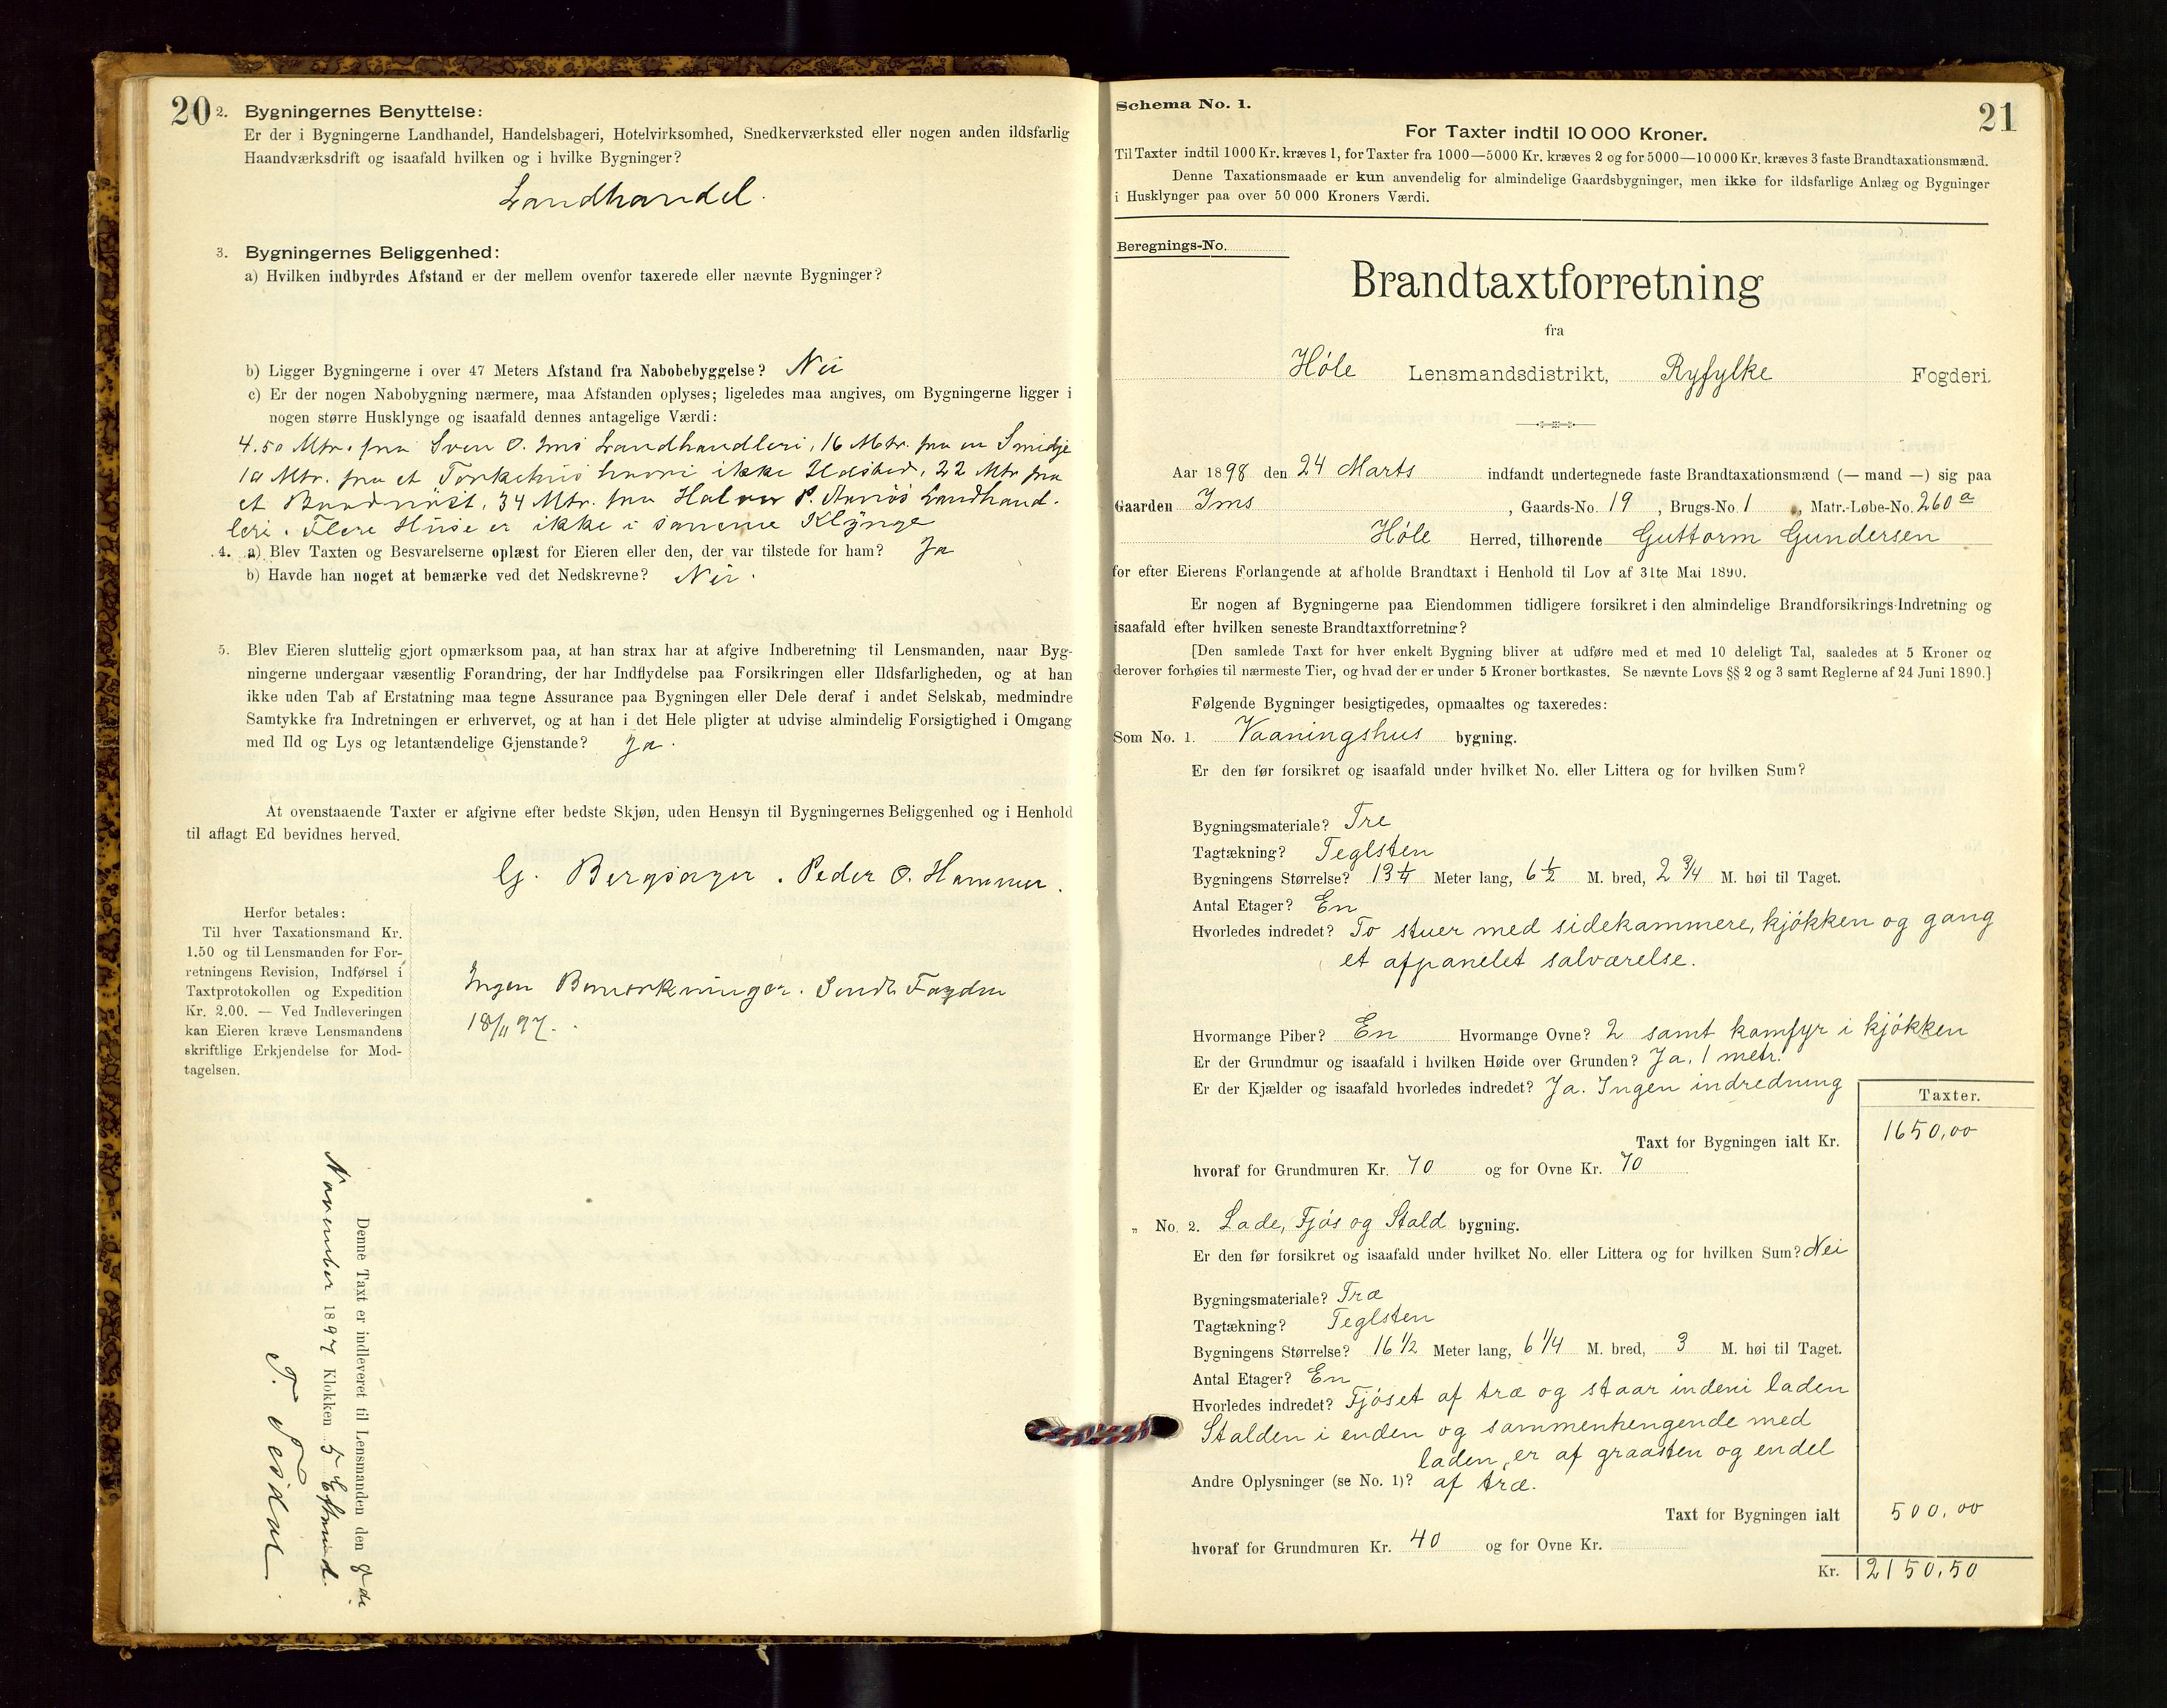 20
2. Bygningernes Benyttelse:
Er der i Bygningerne Landhandel, Handelsbageri, Hotelvirksomhed, Snedkerværksted eller nogen anden ildsfarlig
Haandværksdrift og isaafald hvilken og i hvilke Bygninger?
Landhandel.
3. Bygningernes Beliggenhed:
a) Hvilken indbyrdes Afstand er der mellem ovenfor taxerede eller nævnte Bygninger?
b) Ligger Bygningerne i over 47 Meters Afstand fra Nabobebyggelse? Nei
c) Er der nogen Nabobygning nærmere, maa Afstanden oplyses; ligeledes maa angives, om Bygningerne ligger i
nogen større Husklynge og isaafald dennes antagelige Værdi:
4.50 Mtr. fra Sven O. Ims Landhandleri, 16 Mtr. fra en Smidje
10 Mtr. fra et Tørkehus hvori ikke Ildsted, 22 Mtr fra
et Baadnøst, 34 Mtr. fra Halvor P. Landhand-
leri. Flere Huse er ikke i samme Klynge
4. a) Blev Taxten og Besvarelserne oplæst for Eieren eller den, der var tilstede for ham? Ja
b) Havde han noget at bemærke ved det Nedskrevne? Nei.
5. Blev Eieren sluttelig gjort opmærksom paa, at han strax har at afgive Indberetning til Lensmanden, naar Byg-
ningerne undergaar væsentlig Forandring, der har Indflydelse paa Forsikringen eller Ildsfarligheden, og at han
ikke uden Tab af Erstatning maa tegne Assurance paa Bygningen eller Dele deraf i andet Selskab, medmindre
Samtykke fra Indretningen er erhvervet, og at han i det Hele pligter at udvise almindelig Forsigtighed i Omgang
med Ild og Lys og letantændelige Gjenstande? Ja.
At ovenstaaende Taxter er afgivne efter bedste Skjøn, uden Hensyn til Bygningernes Beliggenhed og i Henhold
til aflagt Ed bevidnes herved.
G. Bergsagen. Peder O. Hammer.
Herfor betales:
Til hver Taxationsmand Kr.
1.50 og til Lensmanden for For-
retningens Revision, Indførsel i
Taxtprotokollen og Expedition
Kr. 2.00. — Ved Indleveringen
kan Eieren kræve Lensmandens
skriftlige Erkjendelse for Mod-
tagelsen.
Ingen Bemærkninger. Sendt Fogden
18/11 97.
Denne Taxt er indleveret til Lensmanden den 8de
November 1897 Klokken 5 Eftermid.
T. Teidal.
Schema No. 1.
21
For Taxter indtil 10 000 Kroner.
Til Taxter indtil 1000 Kr. kræves 1, for Taxter fra 1000—5000 Kr. kræves 2 og for 5000—10 000 Kr. kræves 3 faste Brandtaxationsmænd.
Denne Taxationsmaade er kun anvendelig for almindelige Gaardsbygninger, men ikke for ildsfarlige Anlæg og Bygninger
i Husklynger paa over 50 000 Kroners Værdi.
Beregnings-No.
Brandtaxtforretning
fra
Høle Lensmandsdistrikt, Ryfylke Fogderi.
Aar 1898 den 24 Marts indfandt undertegnede faste Brandtaxationsmænd (— mand —) sig paa
Gaarden Ims, Gaards-No. 19, Brugs-No. 1, Matr.-Løbe-No. 260a
Høle Herred, tilhørende Guttorm Gundersen
for efter Eierens Forlangende at afholde Brandtaxt i Henhold til Lov af 31te Mai 1890.
Er nogen af Bygningerne paa Eiendommen tidligere forsikret i den almindelige Brandforsikrings-Indretning og
isaafald efter hvilken seneste Brandtaxtforretning?
[Den samlede Taxt for hver enkelt Bygning bliver at udføre med et med 10 deleligt Tal, saaledes at 5 Kroner og
derover forhøies til nærmeste Tier, og hvad der er under 5 Kroner bortkastes. Se nævnte Lovs §§ 2 og 3 samt Reglerne af 24 Juni 1890.]
Følgende Bygninger besigtigedes, opmaaltes og taxeredes:
Som No. 1. Vaaningshus bygning.
Er den før forsikret og isaafald under hvilket No. eller Littera og for hvilken Sum?
Bygningsmateriale? Tre
Tagtækning? Teglsten
Bygningens Størrelse? 13 1/4 Meter lang, 6 1/2 M. bred, 2 3/4 M. høi til Taget.
Antal Etager? En
Hvorledes indredet? To stuer med sidekammere, kjøkken og gang
et afpanelet salværelse.
Hvormange Piber? En Hvormange Ovne? 2 samt komfyr i kjøkken
Er der Grundmur og isaafald i hvilken Høide over Grunden? Ja, 1 metr.
Er der Kjælder og isaafald hvorledes indredet? Ja. Ingen indredning
Taxter.
Taxt for Bygningen ialt Kr. 1650,00
hvoraf for Grundmuren Kr. 70 og for Ovne Kr. 70
„ No. 2. Lade, Fjøs og Stald bygning.
Er den før forsikret og isaafald under hvilket No. eller Littera og for hvilken Sum? Nei
Bygningsmateriale? Træ
Tagtækning? Teglsten
Bygningens Størrelse? 16 1/2 Meter lang, 6 1/4 M. bred, 3 M. høi til Taget.
Antal Etager? En
Hvorledes indredet? Fjøset af træ og staar indeni laden
Stalden i enden og sammenhengende med
laden, er af graasten og endel
Andre Oplysninger (se No. 1)? af træ.
Taxt for Bygningen ialt 500,00
hvoraf for Grundmuren Kr. 40 og for Ovne Kr.
Kr. 2150,50